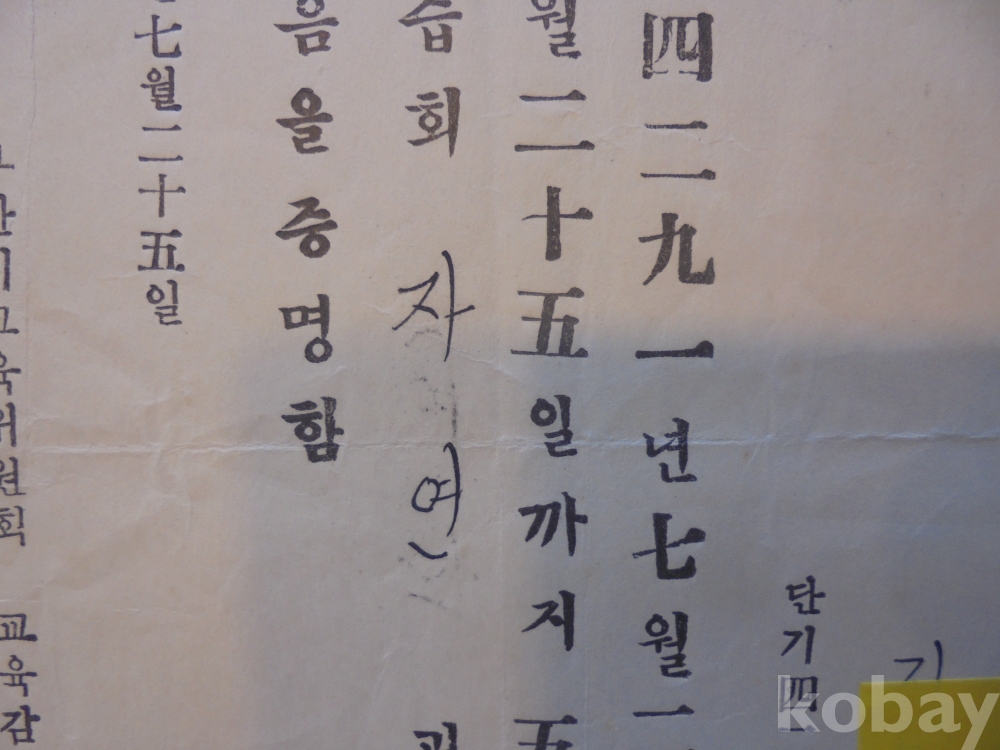 단기四
四二九一년七월一
월二十五일까지五
습회 자여
음을증명함
七월二十五일
교육위원회 교육감
kobay